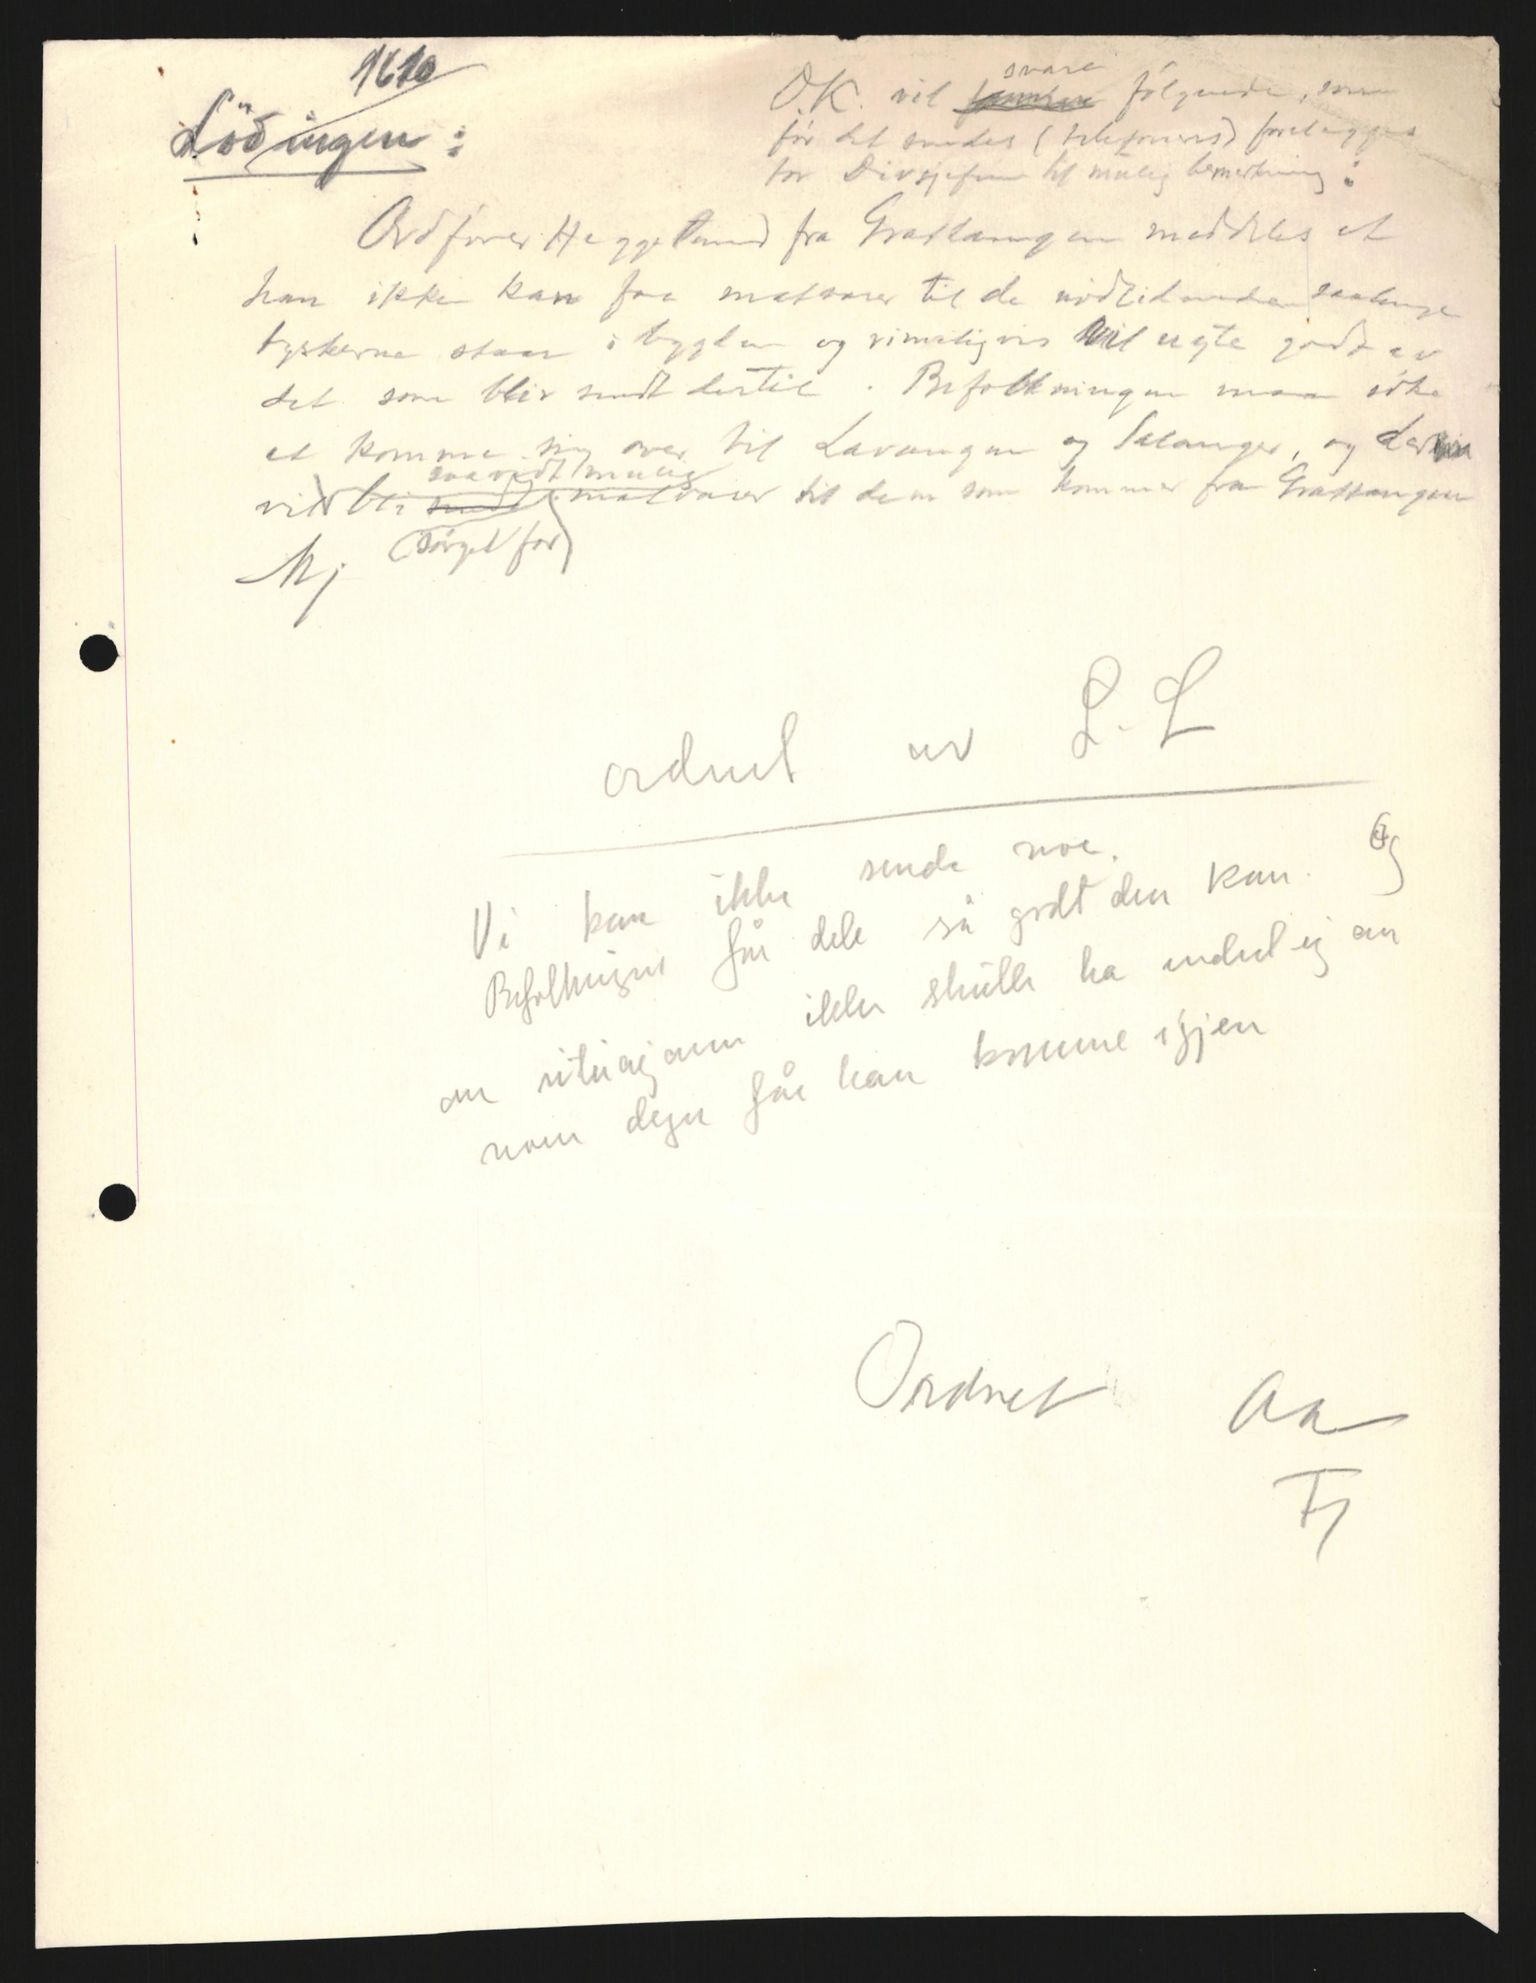 1610
Lödingen:
O.K. vil svare følgende, som
før det sendes (telefoneres) forelegges
for Divsjefen til mulig bemerkning:
Ordfører Heggelund fra Gratangen meddeles at
han ikke kan faa matvarer til de nødlidende saalenge
tyskerne staar i bygden og rimeligvis vil nyte godt av
det som blir sendt dertil. Befolkningen maa søke
at komme sig over til Lavangen og Salangen, og der
vil bli saavidt mulig
sørget for matvarer til dem som kommer fra Gratangen
Mj
ordnet av L.L
Vi kan ikke sende noe.
Befolkningen får dele så godt den kan. Og
om situasjonen ikke skulle ha endret sig om
noen dager får han komme igjen
Ordnet Aa
Fj